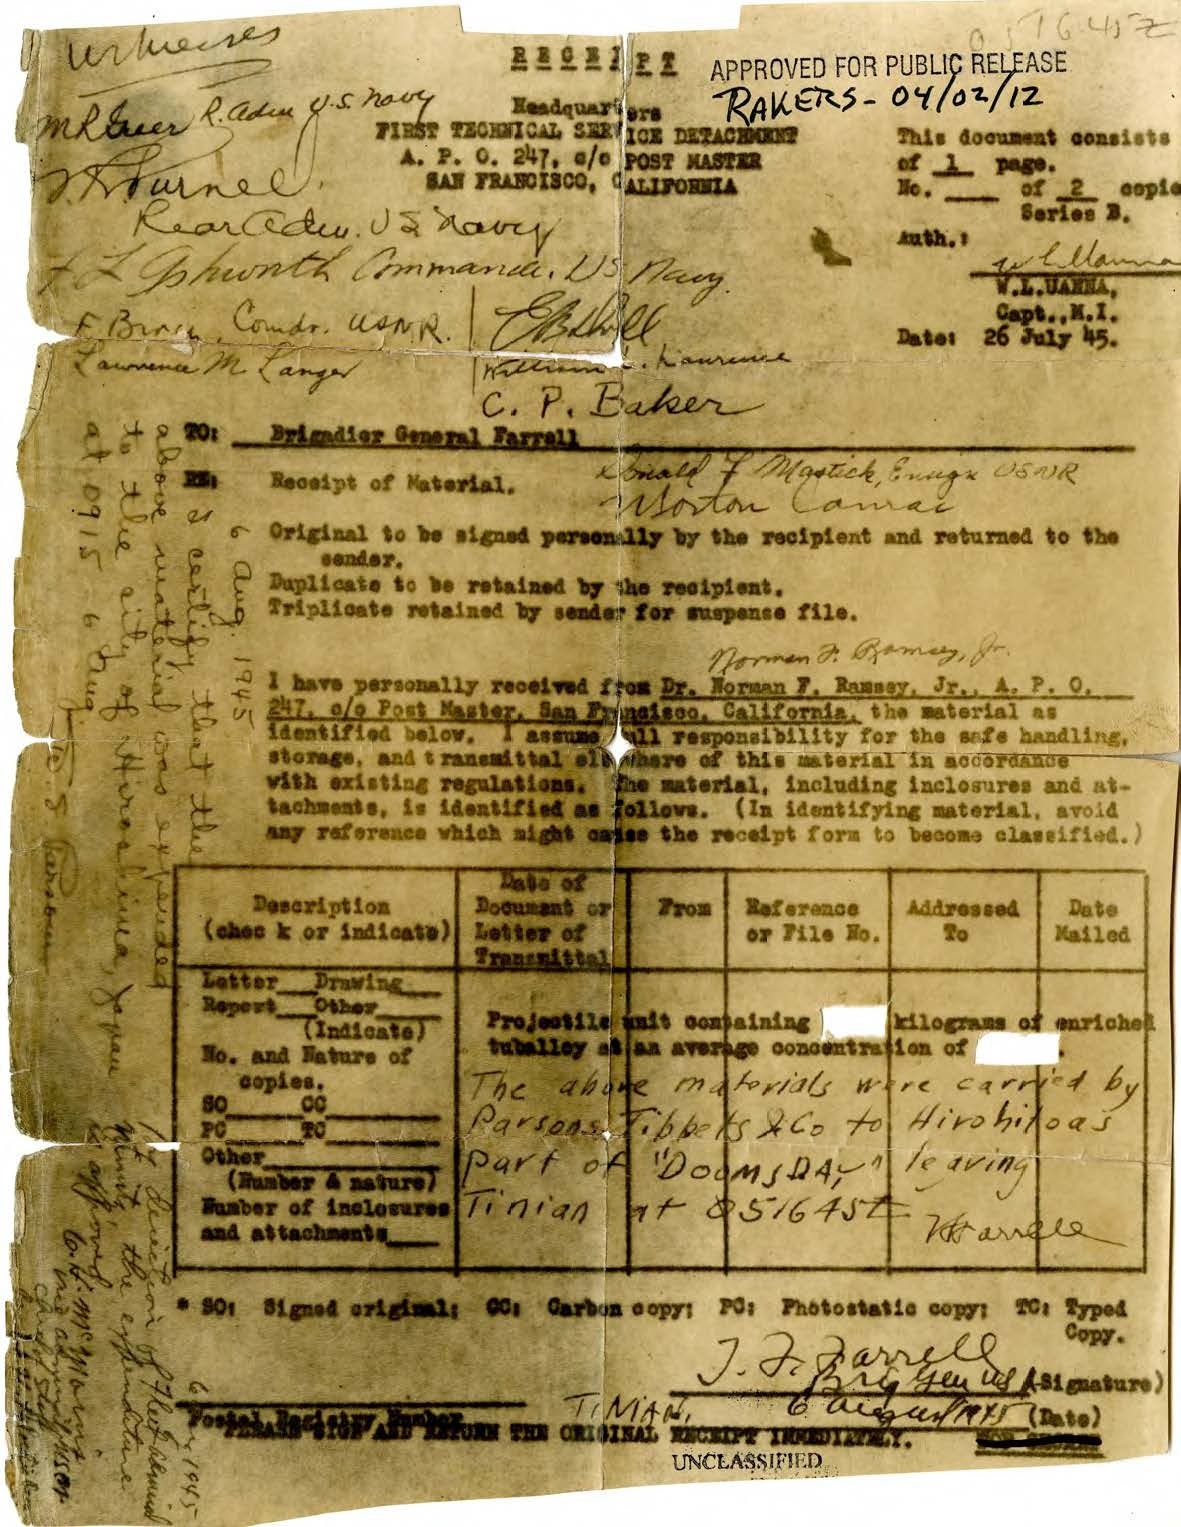 Witnesses
051645Z
RECEIPT
APPROVED FOR PUBLIC RELEASE
RAKERS - 04/02/12
R. Adm U.S. Navy
W.R. Purnell
Rear Adm. US Navy
F L Ashworth Commander, US Navy
F. Birch, Comdr. USNR.
Lawrence M Langer
William L. Laurence
C. P. Baker
Headquarters
FIRST TECHNICAL SERVICE DETACHMENT
A. P. O. 247, c/o POST MASTER
SAN FRANCISCO, CALIFORNIA
This document consists
of 1 page.
No. ___ of 2 copie
Series B.
Auth.:
W.L.UANNA,
Capt., M.I.
Date: 26 July 45.
TO: Brigadier General Farrell
Donald F Mastick, Ensign USNR
Morton Camac
RE: Receipt of Material.
Original to be signed personally by the recipient and returned to the
sender.
Duplicate to be retained by the recipient.
Triplicate retained by sender for suspense file.
Norman F. Ramsey, Jr.
I have personally received from Dr. Norman F. Ramsey, Jr., A. P. O.
247, c/o Post Master, San Francisco, California, the material as
identified below. I assume all responsibility for the safe handling,
storage, and transmittal elsewhere of this material in accordance
with existing regulations. The material, including inclosures and at-
tachments, is identified as follows. (In identifying material, avoid
any reference which might cause the receipt form to become classified.)
Description
(chec k or indicate)
Date of
Document or
Letter of
Transmittal
From
Reference
or File No.
Addressed
To
Date
Mailed
Letter___Drawing___
Report___Other___
(Indicate)
No. and Nature of
copies.
SO___ CC___
PC___ TC___
Other___
(Number & nature)
Number of inclosures
and attachments___
Projectile unit containing kilograms of enriched
tuballoy at an average concentration of .
The above materials were carried by
Parsons, Tibbets & Co to Hirohito as
part of "Doomsday" leaving
Tinian at 051645Z
TFFarrell
* SO: Signed original; CC: Carbon copy; PC: Photostatic copy; TC: Typed
Copy.
T. F. Farrell
Brig Gen US A (Signature)
Tinian, 6 August 1945 (Date)
Postal Registry Number
PLEASE SIGN AND RETURN THE ORIGINAL RECEIPT IMMEDIATELY.
UNCLASSIFIED
6 Aug. 1945
I certify that the
above material was expended
to the city of Hiroshima, Japan
at 0915 6 Aug
W. S. Parsons
6 Aug 1945
By direction of Fleet Admiral
Nimitz, the expenditure
is approved
C. H. McMorris
Vice Admiral, USN
Chief of Staff